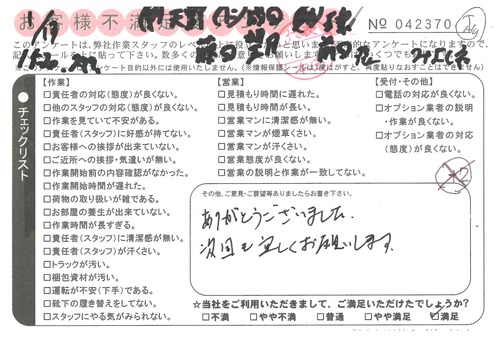 お客様不満足
No 042370
1/19
このアンケートは、弊社作業スタッフのレベル
記シールを
チェックリスト
【作業】
□責任者の対応(態度)が良くない。
□他のスタッフの対応(態度)が良くない。
□作業を見ていて不安がある。
□責任者(スタッフ)に好感が持てない。
□お客様への挨拶が出来ていない。
□ご近所への挨拶・気遣いが無い。
□作業開始前の内容確認がなかった。
□作業開始時間が遅れた。
□荷物の取り扱いが雑である。
□お部屋の養生が出来ていない。
□作業時間が長すぎる。
□責任者(スタッフ)に清潔感が無い。
□責任者(スタッフ)が汗くさい。
□トラックが汚い。
□梱包資材が汚い。
□運転が不安(下手)である。
□靴下の履き替えをしてない。
□スタッフにやる気がみられない。
【営業】
□見積もり時間に遅れた。
□見積もり時間が長い。
□営業マンに清潔感が無い。
□営業マンが煙草くさい。
□営業マンが汗くさい。
□営業態度が良くない。
□営業の説明と作業が一致してない。
【受付・その他】
□電話の対応が良くない。
□オプション業者の説明
・作業が良くない。
□オプション業者の対応
(態度)が良くない。
その他、ご意見・ご要望等ありましたらお書き下さい。
ありがとうございました.
次回も宜しくお願いします.
☆当社をご利用いただきまして、ご満足いただけたでしょうか?
□不満 □やや不満 □普通 □やや満足 ☑満足